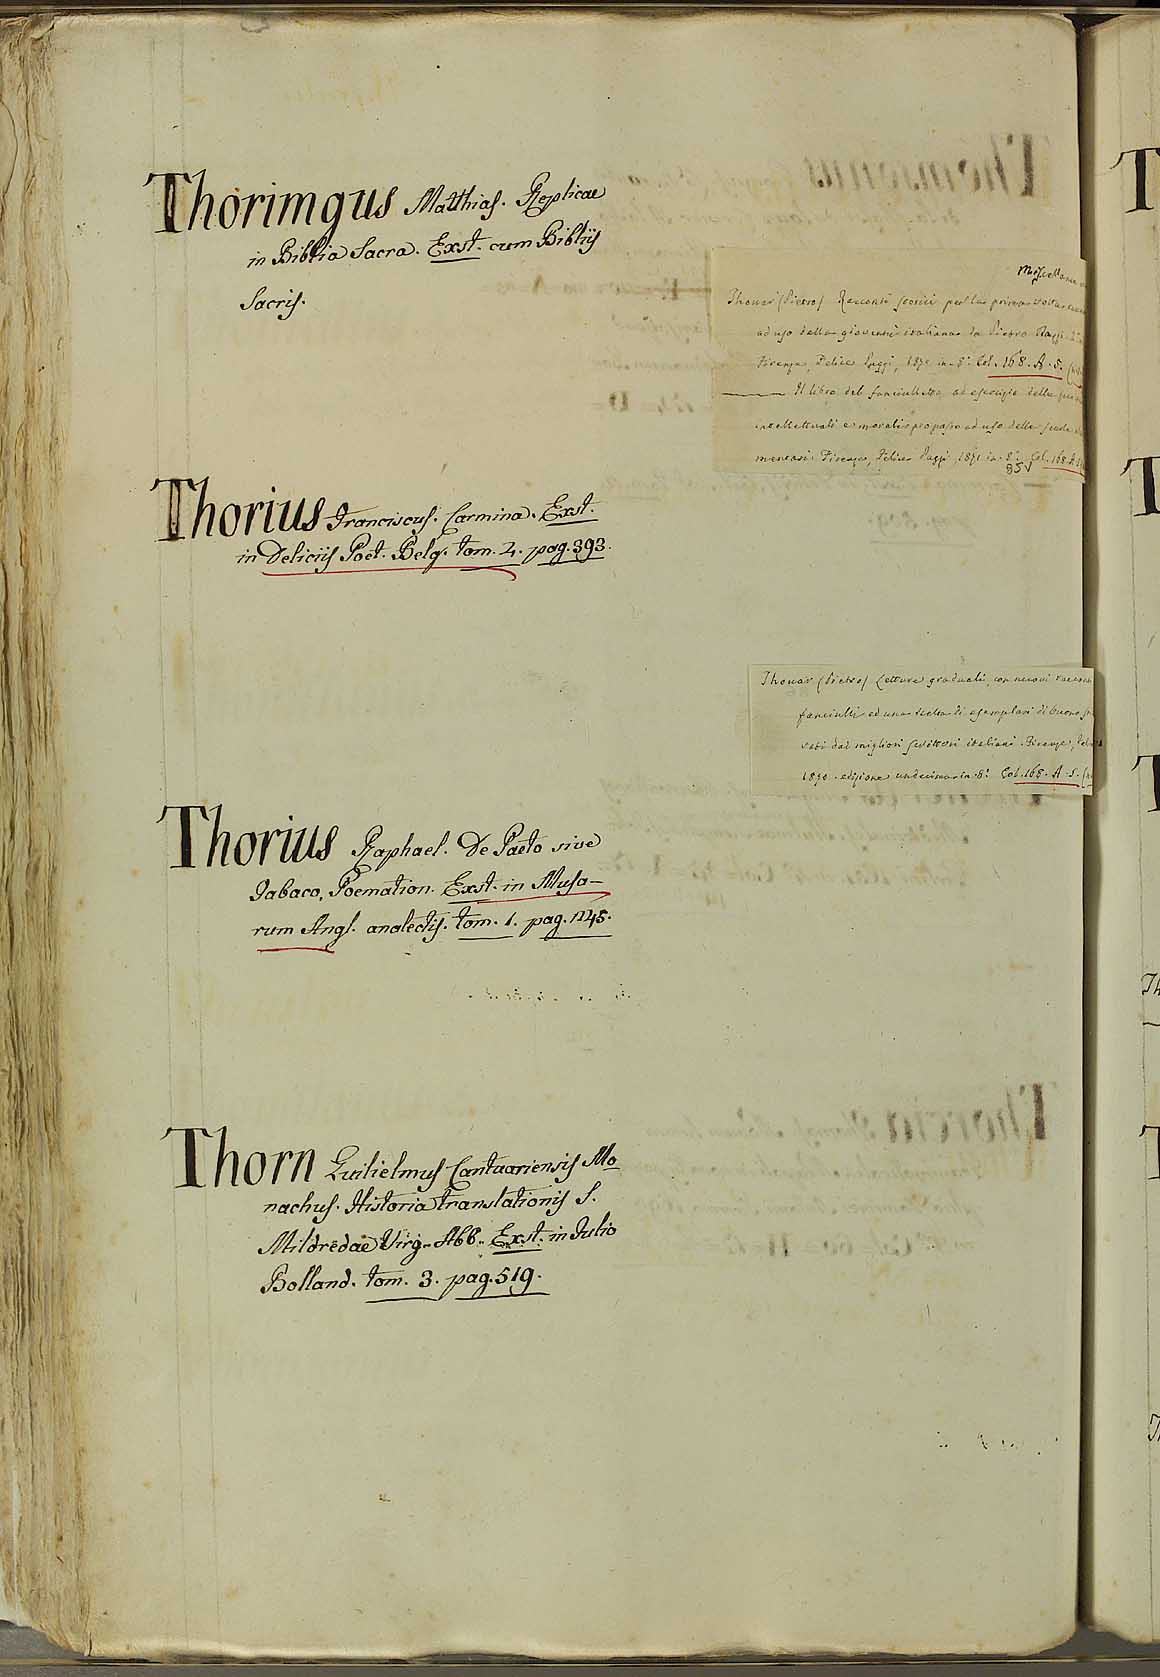 Thorimgus Matthias. Replicae
in Biblia Sacra. Exst. cum Bibliis
Sacris.
Thorius Franciscus. Carmina. Exst.
in Deliciis Poet. Belg. tom. 4. pag. 393.
Thorius Raphael. De Paeto sive
Tabaco, Poemation. Exst. in Musa-
rum Angl. analectis. tom. 1. pag. 1145.
Thorn Guilielmus Cantuariensis Mo
nachus. Historia Translationis S.
Mildredae Virg. Abb. Exst. in Julio
Bolland. tom. 3. pag. 519.
Miscellanea
Thouar (Pietro) Racconti storici per la prima volta
ad uso della gioventù italiana da Pietro
Firenze, Felice Paggi, 1871 in 8.° Col. 168. A. 5.
Il libro del fanciulletto, ad esercizio delle
intellettuali e morali proposto ad uso delle scuole
mentari. Firenze, Felice Paggi, 1871 in 8.° Col. 168. A.
85V
Thouar (Pietro) Letture graduali, con nuovi racconti
fanciulli ed una scelta di esemplari di buono
cati dai migliori scrittori italiani. Firenze,
1870. edizione undecima in 8.° Col. 168. A. 5.